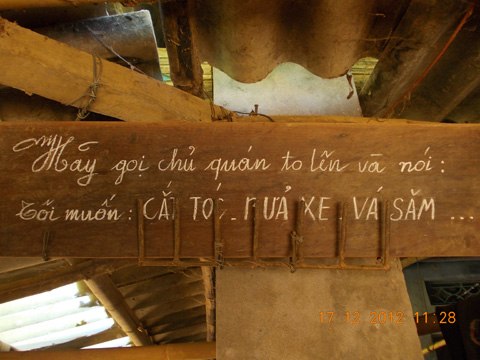 Hãy gọi chủ quán to lên và nói:
Tôi muốn: CẮT TÓC. RỬA XE. VÁ SĂM ...
17 12 2012 11:28